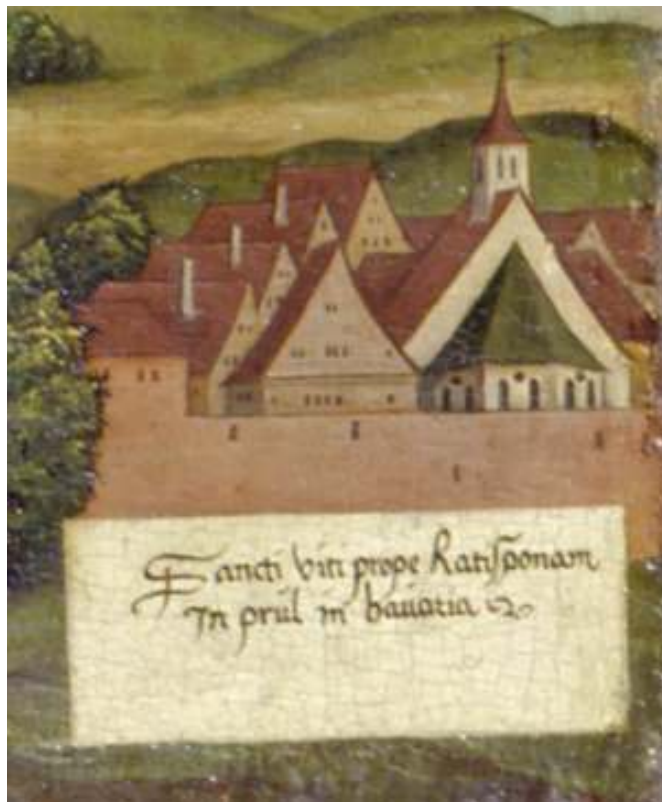 Sancti viti prope Ratisponam
In prül in bauaria